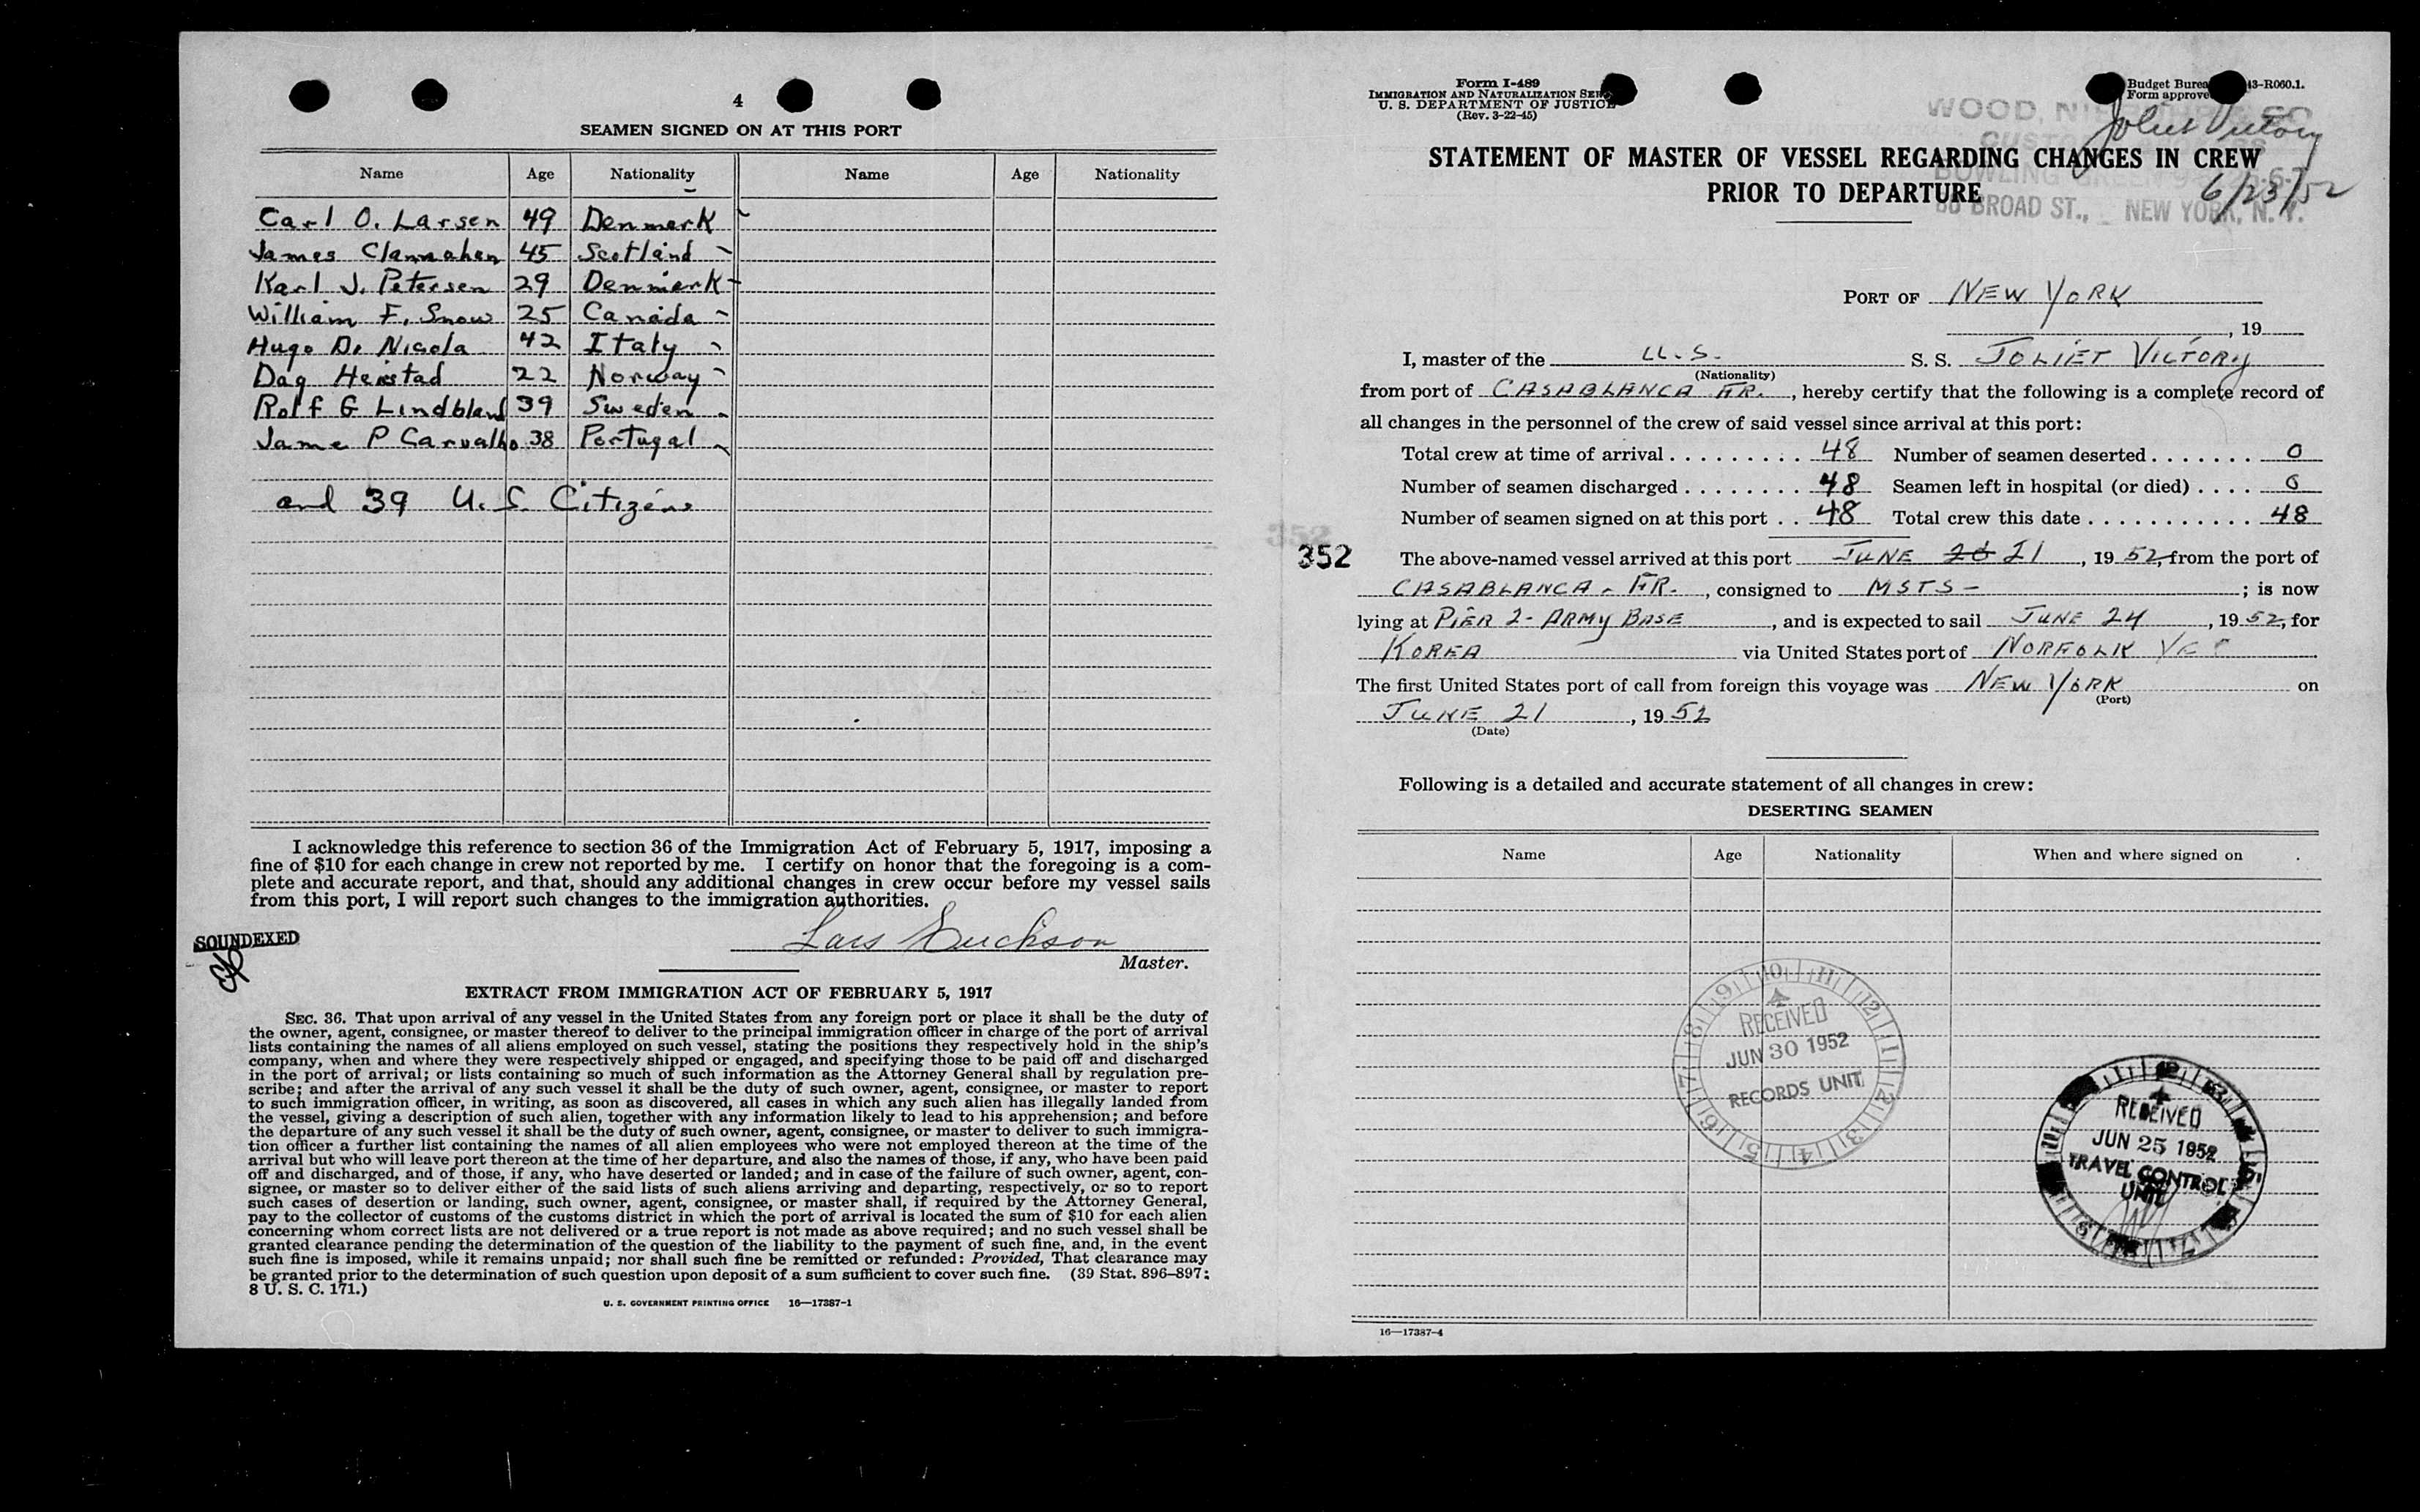 4
SEAMEN SIGNED ON AT THIS PORT
Name Age Nationality Name Age Nationality
Carl O. Larsen 49 Denmark
James Clannahen 45 Scotland
Karl J. Petersen 29 Denmark
William F. Snow 25 Canada
Hugo Di Nicola 42 Italy
Dag Heistad 22 Norway
Rolf G Lindbland 39 Sweden
Jame P Carvalho 38 Portugal
and 39 U.S. Citizens
I acknowledge this reference to section 36 of the Immigration Act of February 5, 1917, imposing a
fine of $10 for each change in crew not reported by me. I certify on honor that the foregoing is a com-
plete and accurate report, and that, should any additional changes in crew occur before my vessel sails
from this port, I will report such changes to the immigration authorities.
SOUNDEXED
Lars Erickson
Master.
EXTRACT FROM IMMIGRATION ACT OF FEBRUARY 5, 1917
SEC. 36. That upon arrival of any vessel in the United States from any foreign port or place it shall be the duty of
the owner, agent, consignee, or master thereof to deliver to the principal immigration officer in charge of the port of arrival
lists containing the names of all aliens employed on such vessel, stating the positions they respectively hold in the ship's
company, when and where they were respectively shipped or engaged, and specifying those to be paid off and discharged
in the port of arrival; or lists containing so much of such information as the Attorney General shall by regulation pre-
scribe; and after the arrival of any such vessel it shall be the duty of such owner, agent, consignee, or master to report
to such immigration officer, in writing, as soon as discovered, all cases in which any such alien has illegally landed from
the vessel, giving a description of such alien, together with any information likely to lead to his apprehension; and before
the departure of any such vessel it shall be the duty of such owner, agent, consignee, or master to deliver to such immigra-
tion officer a further list containing the names of all alien employees who were not employed thereon at the time of the
arrival but who will leave port thereon at the time of her departure, and also the names of those, if any, who have been paid
off and discharged, and of those, if any, who have deserted or landed; and in case of the failure of such owner, agent, con-
signee, or master so to deliver either of the said lists of such aliens arriving and departing, respectively, or so to report
such cases of desertion or landing, such owner, agent, consignee, or master shall, if required by the Attorney General,
pay to the collector of customs of the customs district in which the port of arrival is located the sum of $10 for each alien
concerning whom correct lists are not delivered or a true report is not made as above required; and no such vessel shall be
granted clearance pending the determination of the question of the liability to the payment of such fine, and, in the event
such fine is imposed, while it remains unpaid; nor shall such fine be remitted or refunded: Provided, That clearance may
be granted prior to the determination of such question upon deposit of a sum sufficient to cover such fine. (39 Stat. 896-897;
8 U. S. C. 171.)
U. S. GOVERNMENT PRINTING OFFICE 16—17387-1
Form I-489
IMMIGRATION AND NATURALIZATION
U. S. DEPARTMENT OF JUSTICE
(Rev. 3-22-45)
Budget 43-R060.1.
Form
WOOD, CO
Joliet Victory
6/23/52
BROAD ST., NEW YORK, N. Y.
STATEMENT OF MASTER OF VESSEL REGARDING CHANGES IN CREW
PRIOR TO DEPARTURE
PORT OF NEW YORK
, 19
I, master of the U.S. S. S. JOLIET VICTORY
(Nationality)
from port of CASABLANCA FR., hereby certify that the following is a complete record of
all changes in the personnel of the crew of said vessel since arrival at this port:
Total crew at time of arrival . . . . . . . . . 48 Number of seamen deserted . . . . . . . 0
Number of seamen discharged . . . . . . . . 48 Seamen left in hospital (or died) . . . . 0
Number of seamen signed on at this port . . 48 Total crew this date . . . . . . . . . . . . 48
352 The above-named vessel arrived at this port JUNE 20 21, 1952, from the port of
CASABLANCA - FR., consigned to MSTS - ; is now
lying at PIER 2 - ARMY BASE, and is expected to sail JUNE 24, 1952, for
KOREA via United States port of NORFOLK
The first United States port of call from foreign this voyage was NEW YORK on
(Port)
JUNE 21, 1952
(Date)
Following is a detailed and accurate statement of all changes in crew:
DESERTING SEAMEN
Name Age Nationality When and where signed on
RECEIVED
JUN 30 1952
RECORDS UNIT
RECEIVED
JUN 25 1952
TRAVEL CONTROL
UNIT
16—17387-4